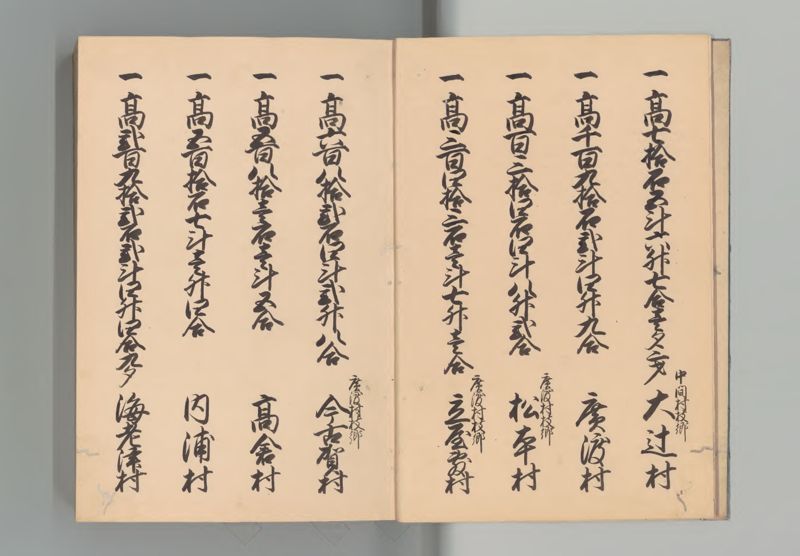 一高七拾石五斗六升七合壱夕弐才 中間村枝郷 大辻村
一高千百九拾石弐斗四升九合 廣渡村
一高百二拾四石四斗八升弐合 廣渡村枝郷 松本村
一高三百四拾二石壱斗七升壱合 廣渡村枝郷 立屋敷村
一高六百八拾弐石四斗弐升八合 廣渡村枝郷 今古賀村
一高五百八拾壱石壱斗五合 高倉村
一高五百拾石七斗壱升四合 内浦村
一高弐百九拾弐石弐斗四升四合九夕 海老津村